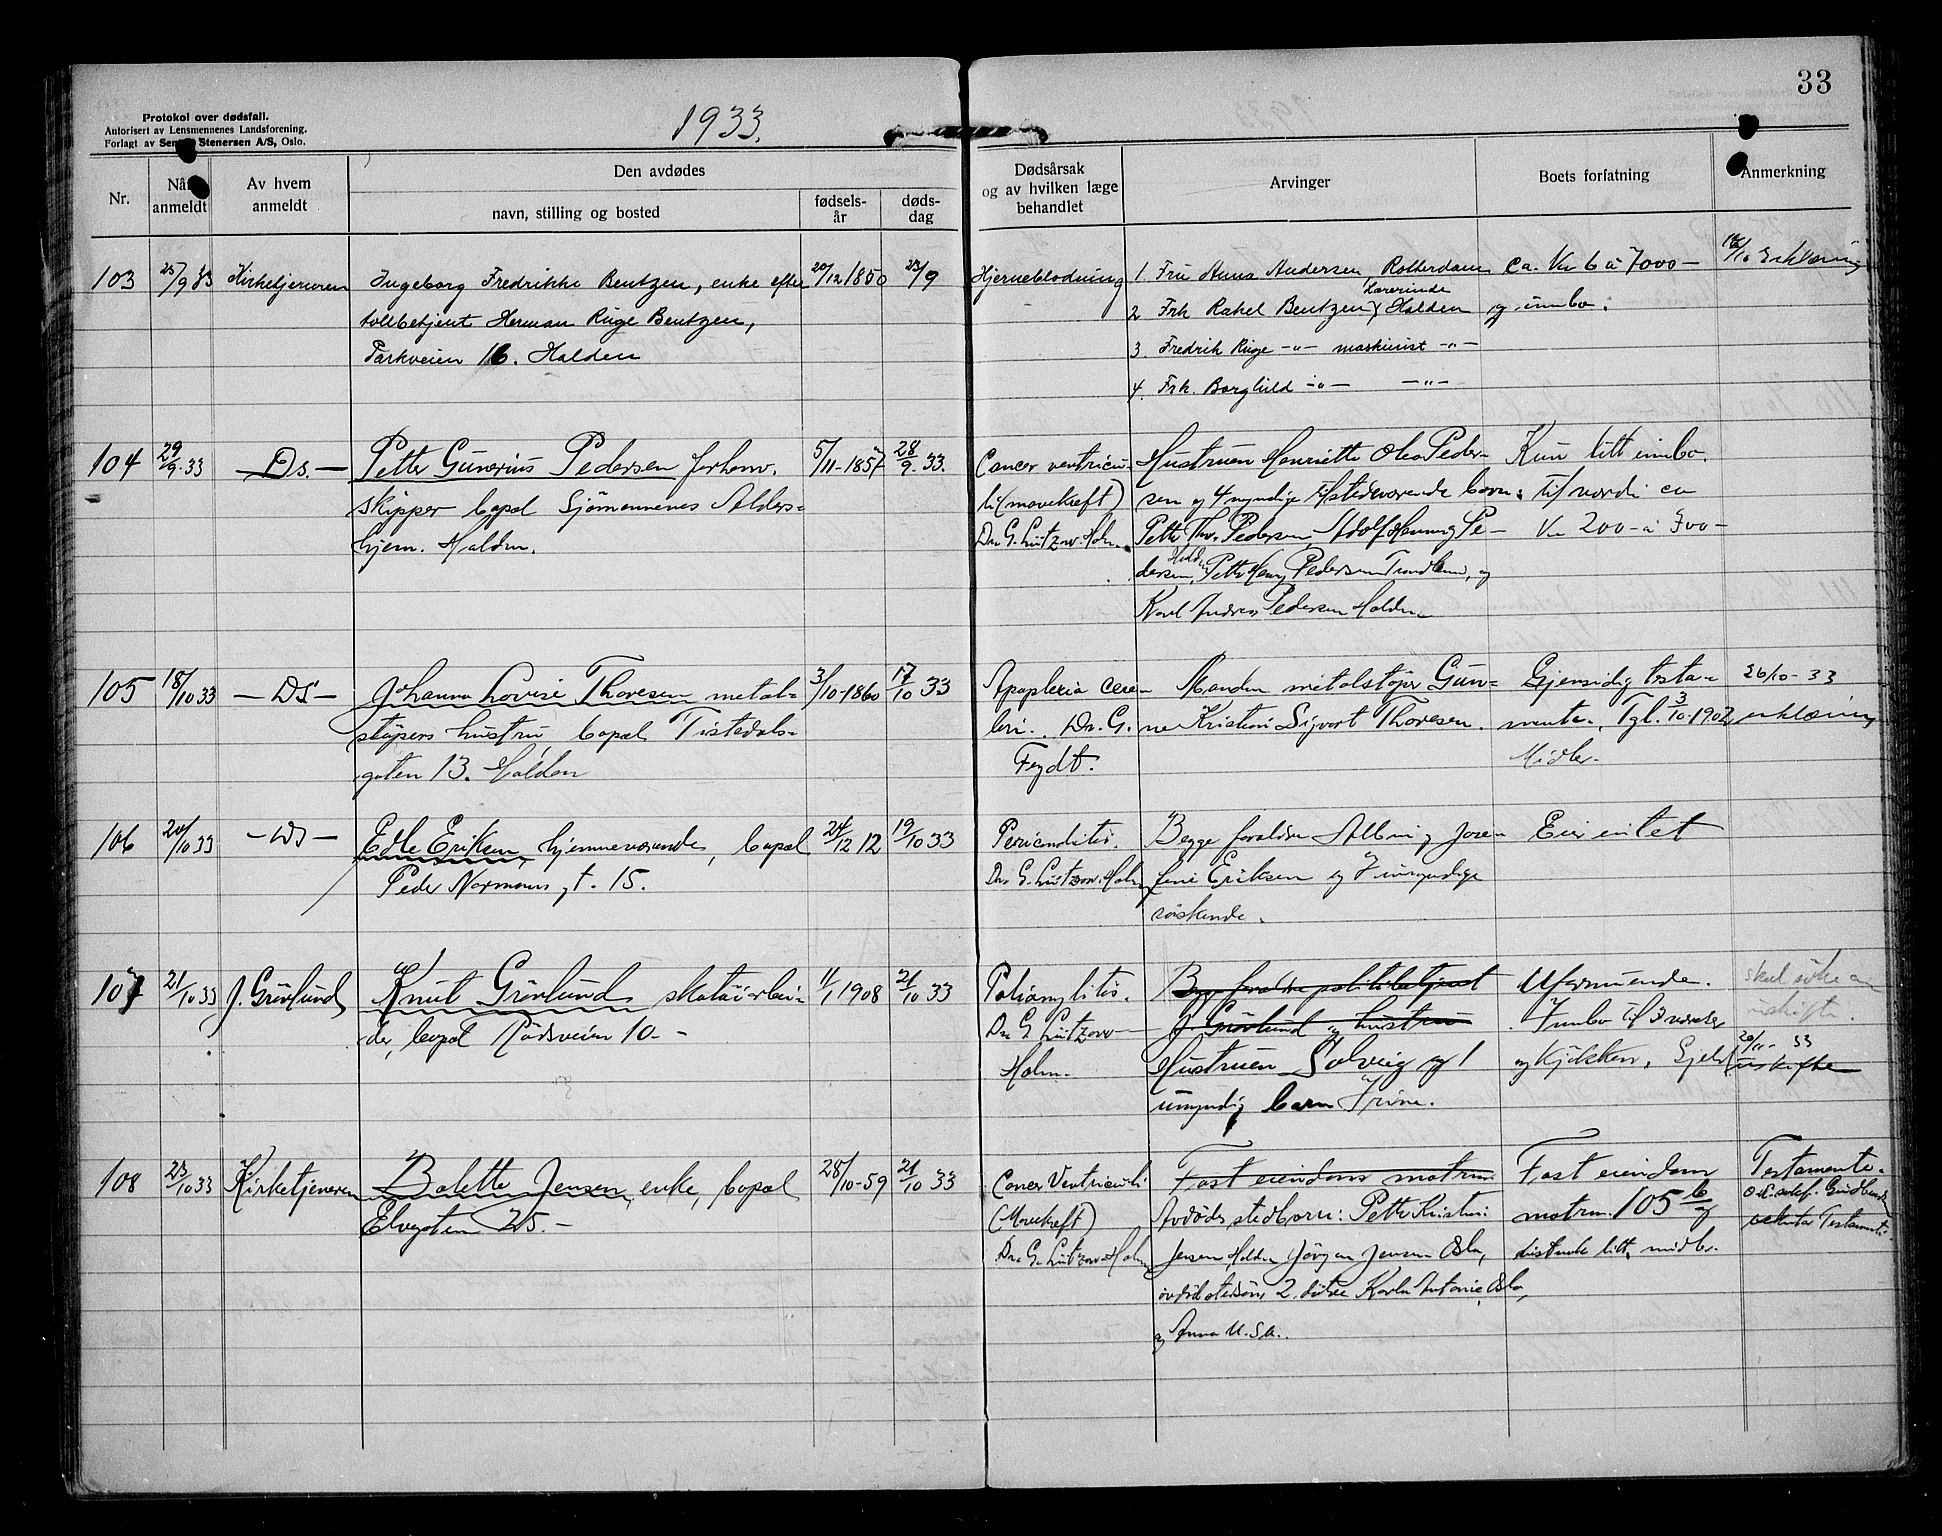 33
1933.
Protokol over dødsfall.
Autorisert av Lensmennenes Landsforening.
Forlagt av Sem Stenersen A/S, Oslo.
Nr.
Når anmeldt
Av hvem anmeldt
Den avdødes
navn, stilling og bosted
fødsels-år
døds-dag
Dødsårsak og av hvilken læge behandlet
Arvinger
Boets forfatning
Anmerkning
103 25/9 33 Kirketjeneren Ingeborg Fredrikke Bentzen, enke efter 20/12 1850 23/9
tollbetjent Herman Ruge Bentzen,
Parkveien 16. Halden
Hjerneblødning
1. Fru Anna Andersen, Rotterdam
Lærerinde
2 Frk Rakel Bentzen, Halden
3 Fredrik Ruge -"- maskinist -"-
4. Frk. Borghild -"- -"-
Ca. Kr 6 à 7000-
og innbo.
/10 Erklæring
104 29/9-33 -Ds.- Petter Gunerius Pedersen forhenv. 5/11-1857 28/9-33.
skipper bopæl Sjømennenes Alders-
hjem. Halden.
Cancer ventricu-
li (mavekreft)
Dr. G. Lützow-Holm.
Hustruen Henriette Olea Peder-
sen og 4 myndige tilstedeværende barn:
Petter Thv. Pedersen Adolf Henning Pe-
dersen, Halden, Petter Henry Pedersen Trondhm, og
Karl Andreas Pedersen Halden
Kun litt innbo.
til verdi ca
Kr 200- à 300-
105 18/10 33 -Ds- Johanna Lovise Thoresen metal- 3/10-1860 17/10 33
støpers hustru bopæl Tistedals-
gaten 13. Halden
Apoplexia cere-
bri. Dr. G.
Feydt.
Manden metalstøper Gun-
ner Kristian Sigvart Thoresen.
Gjensidig testa-
mente. Tgl. 3/10-1902
Midler.
26/10-33
erklæring
106 20/10 33 -Ds- Edle Eriksen, hjemmeværende, bopæl 24/12 12 19/10 33
Peder Normans gt. 15.
Dr. G. Lützow-Holm
Begge foreldre Albin og Josefine Eriksen og 7 umyndige
søskende.
Eier intet
107 21/10 33 J. Grönlund Knut Grönlund skotöiarbei- 1/1 1908 21/10 33
der, bopæl Rödsveien 10-
Dr. G. Lützow-
Holm-
Begge foreldre politibetjent
J. Grönlund og hustru
Hustruen Solveig og 1
umyndig barn Irine.
Uformuende.
Innbo til 3 værelser
og kjökken. Gjeld
skal sitte i
uskifte.
20/11-33
uskifte
108 23/10 33 Kirketjeneren Bolette Jensen, enke, bopæl 28/10-59 21/10 33
Elvegaten 25.-
Cancer Ventriculi
(Mavekreft)
Dr. G. Lützow-Holm
Fast eiendom matrnr.
Avdødes stedbarn: Petter Kristian
Jensen Halden Jörgen Jensen Oslo,
2 døtre Karla Antonie, Oslo,
og Anna U.S.A..
Fast eiendom
matrnr. 105 b og
litt midler.
Testamente.
Testamente.